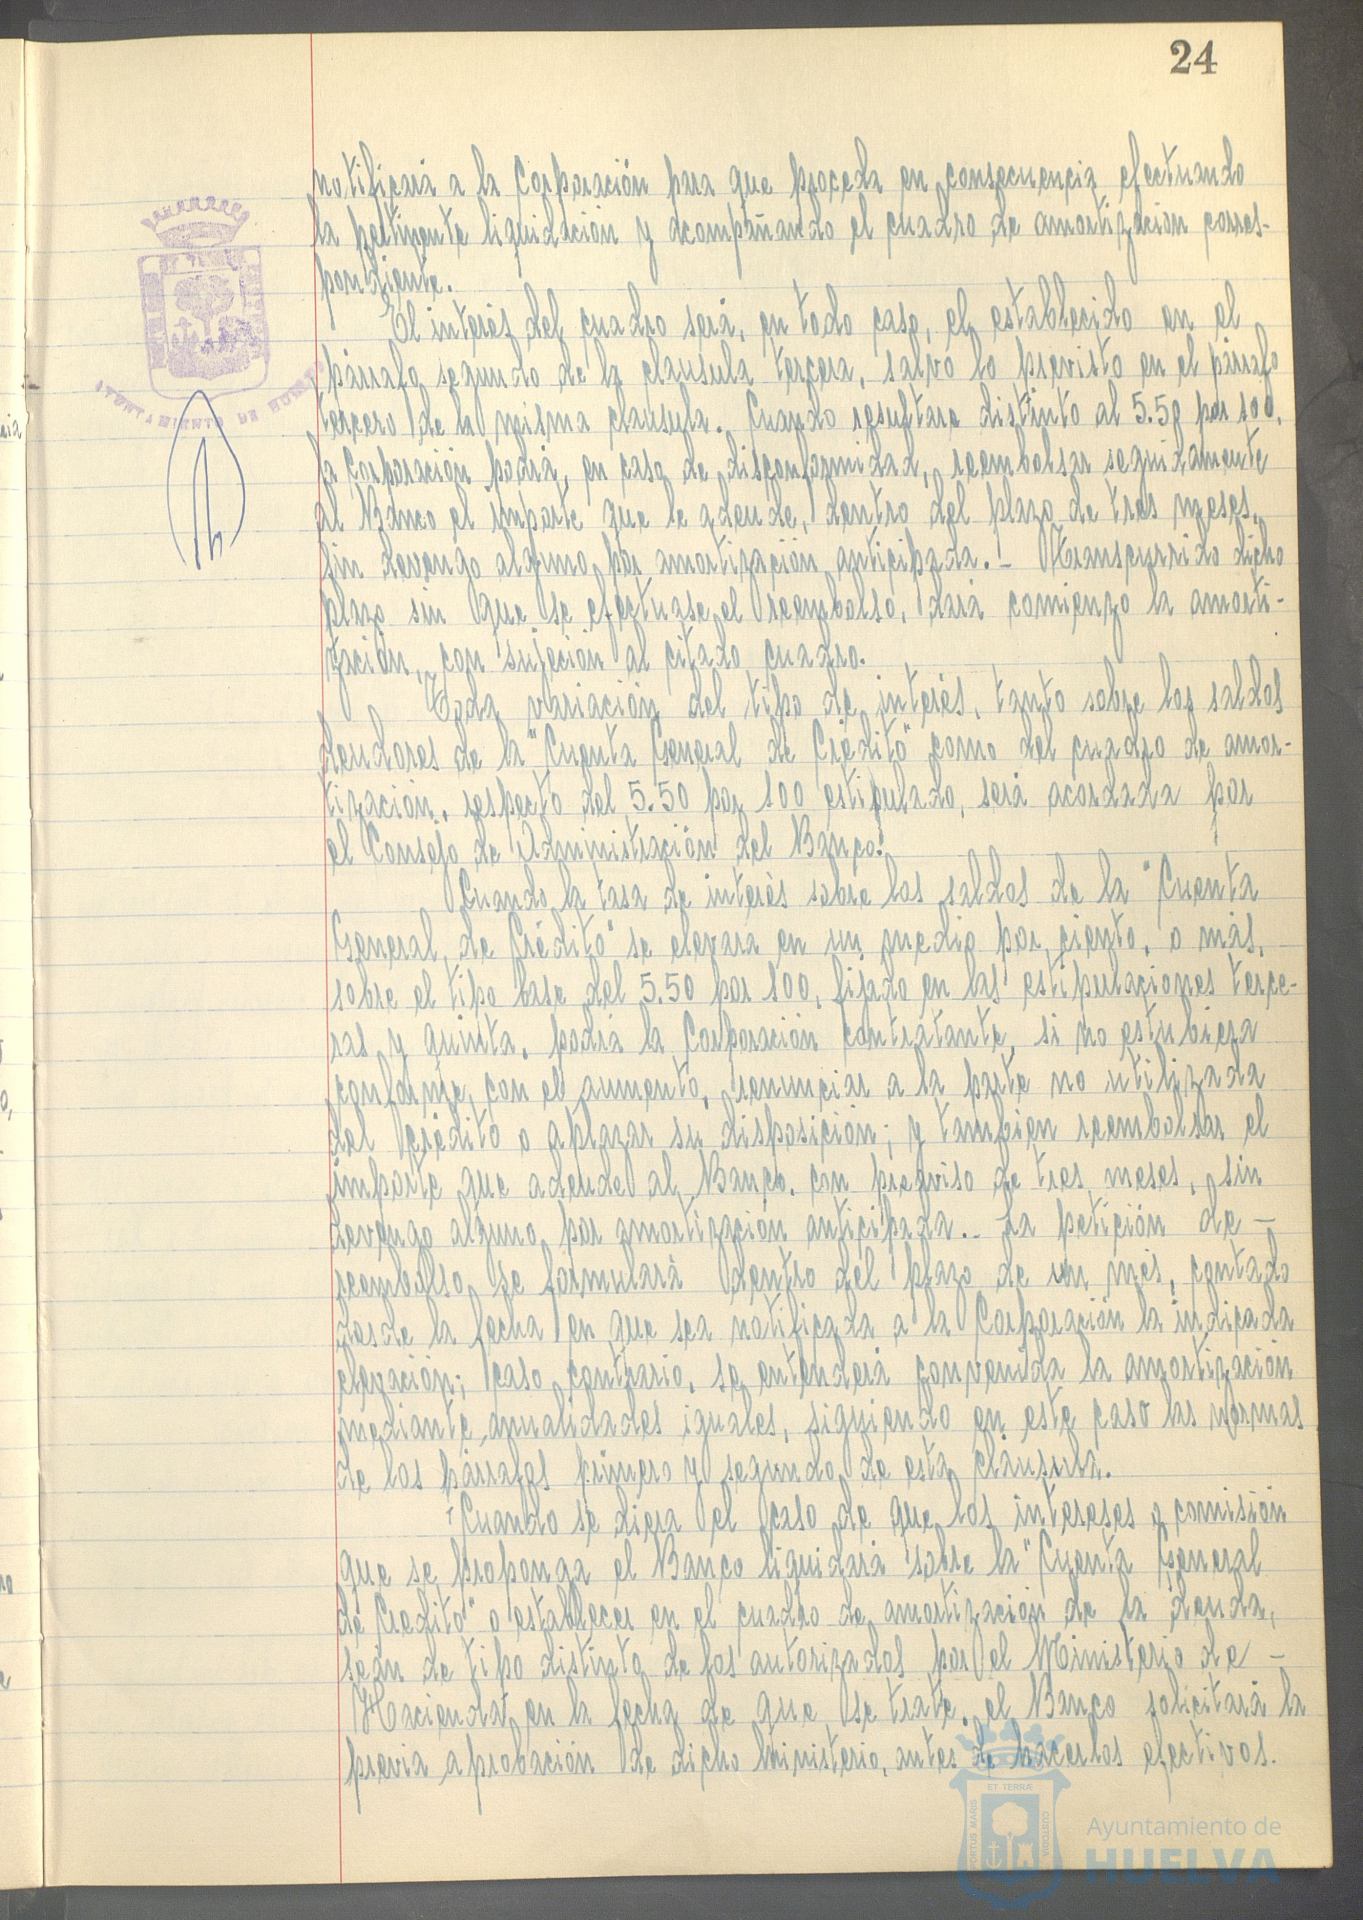 24
notificará a la Corporación para que proceda en consecuencia efectuando
la pertinente liquidación y acompañando el cuadro de amortización corres-
pondiente.
El interés del cuadro será, en todo caso, el establecido en el
párrafo segundo de la clausula tercera, salvo lo previsto en el párrafo
tercero de la misma clausula. Cuando resultare distinto al 5.50 por 100,
la Corporación podrá, en caso de disconformidad, reembolsar seguidamente
al Banco el importe que le adeude, dentro del plazo de tres meses,
sin devengo alguno por amortización anticipada.- Transcurrido dicho
plazo sin que se efectuase el reembolso, dará comienzo la amorti-
zación, con sujeción al citado cuadro.
Toda variación del tipo de interés, tanto sobre los saldos
deudores de la "Cuenta General de Crédito" como del cuadro de amor-
tización, respecto del 5.50 por 100 estipulado, será acordada por
el Consejo de Administración del Banco.
Cuando la tasa de interés sobre los saldos de la "Cuenta
General de Crédito" se elevara en un medio por ciento, o más,
sobre el tipo base del 5.50 por 100, fijado en las estipulaciones terce-
ras y quinta, podrá la Corporación contratante, si no estubiera
conforme con el aumento, renunciar a la parte no utilizada
del crédito o aplazar su disposición; y tambien reembolsar el
importe que adeude al Banco, con preaviso de tres meses, sin
devengo alguno por amortización anticipada.- La petición de -
reembolso se formulará dentro del plazo de un mes, contado
desde la fecha en que sea notificada a la Corporación la indicada
elevación; caso contrario, se entenderá convenida la amortización
mediante anualidades iguales, siguiendo en este caso las normas
de los párrafos primero y segundo de esta cláusula.
Cuando se diera el caso de que los intereses o comisión
que se proponga el Banco liquidará sobre la "Cuenta General
de Credito" o establecer en el cuadro de amortización de la deuda,
sean de tipo distinto de los autorizados por el Ministerio de -
Hacienda en la fecha de que se trate, el Banco solicitará la
previa aprobación de dicho Ministerio, antes de hacerlos efectivos.
AYUNTAMIENTO DE HUELVA
PORTUS MARIS
ET TERRÆ
CUSTODIA
Ayuntamiento de
HUELVA